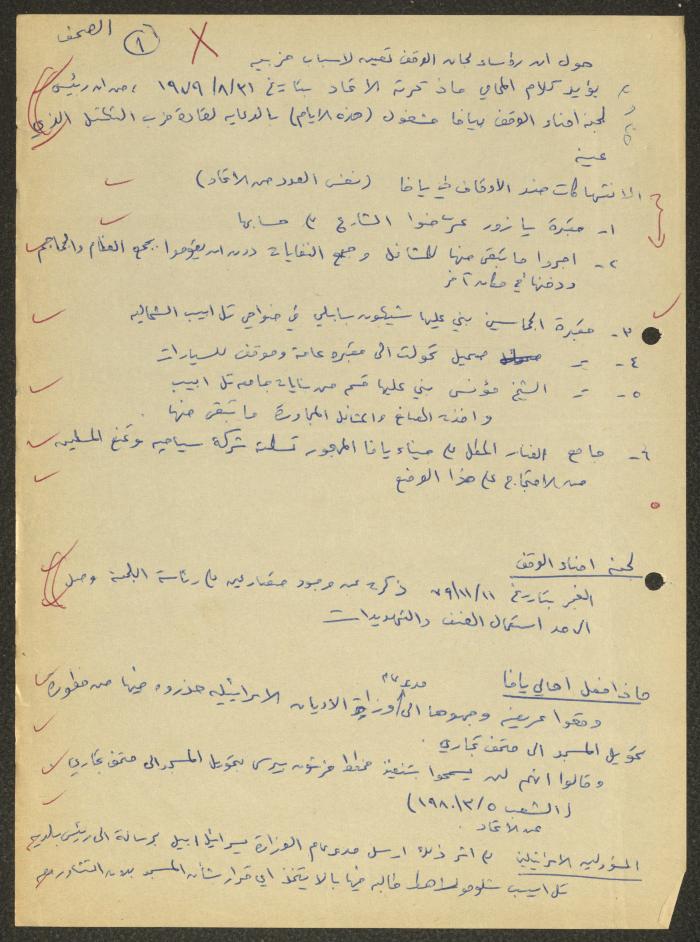 الصحف
١
حول ان رؤساء لجان الوقف تعين لاسباب حزبيه
يؤيد كلام المحامي ماذكرته الاتحاد بتاريخ ١٩٧٩/٨/٣١ ، من ان رئيس
لجنة امناء الوقف بيافا مشغول (هذه الايام) بالدعايه لقادة حزب التكتل الذي
عينه
الانتهاكات ضد الأوقاف في يافا (نفس العدد من الاتحاد)
١- مقبرة يازور عرضوا الشارع على حسابها
٢- اجروا ما تبقى منها للمشاتل وجمع النفايات دون ان يقوموا بجمع العظام والجماجم
ودفنها في مكان آخر
٣- مقبرة الجماسين بني عليها شيكون بابلي في ضواحي تل ابيب الشماليه
٤- = صميل تحولت الى مقبره عامة وموقف للسيارات
٥- = الشيخ مؤنس بني عليها قسم من بنايات جامعة تل ابيب
واخذت المصانع والمشاتل المجاورة ما تبقى منها .
٦- جامع الفنار المطل على ميناء يافا المهجور تسلمته شركة سياحيه وتمنع المسلمين
من الاحتجاج على هذا الوضع
لجنه امناء الوقف
الفجر بتاريخ ٧٩/١١/١١ ذكرت عن وجود متصارعين على رئاسة اللجنة وصل
الى حد استعمال العنف والتهديدات
ماذا فعل اهالي يافا
وقعوا عريضه وجهوها الى مدير عام وزارة الاديان الاسرائيليه حذروه فيها من خطورة
تحويل المسجد الى متحف تجاري .
وقالوا انهم لن يسمحوا بتنفيذ مخطط بتحويل المسجد الى متحف تجاري
(الشعب ١٩٨٠/٣/٥)
عن الاتحاد
المسؤولين الاسرائيليين على اثر ذلك ارسل مدير عام الوزارة يسرائيل برسالة الى رئيس بلدية
تل ابيب شلومو لاهط طالبه فيها بالا يتخذ اي قرار بشأن المسجد بدون التشاور مع